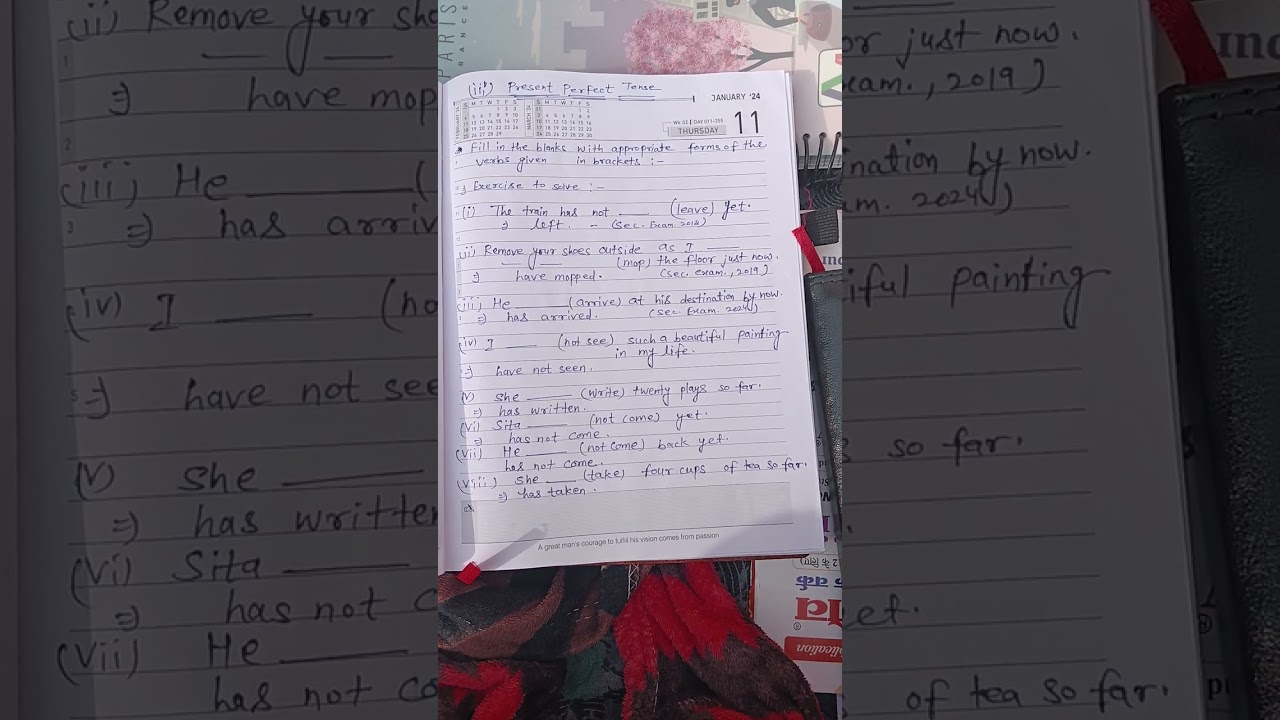 (iii) Present Perfect Tense
JANUARY '24
Wk 02 | DAY 011-355
THURSDAY 11
Fill in the blanks with appropriate forms of the
verbs given in brackets :-
=> Exercise to solve :-
(i) The train has not ___ (leave) yet.
=> left. - (Sec. Exam 2018)
(ii) Remove your shoes outside as I ___
(mop) the floor just now.
=> have mopped. (Sec. exam., 2019)
(iii) He ___ (arrive) at his destination by now.
=> has arrived. (Sec. Exam. 2024)
(iv) I ___ (not see) such a beautiful painting
in my life.
=> have not seen.
(v) She ___ (write) twenty plays so far.
=> has written.
(vi) Sita ___ (not come) yet.
=> has not come.
(vii) He ___ (not come) back yet.
has not come.
(viii) She ___ (take) four cups of tea so far.
=> has taken.
A great man's courage to fulfill his vision comes from passion
PARIS